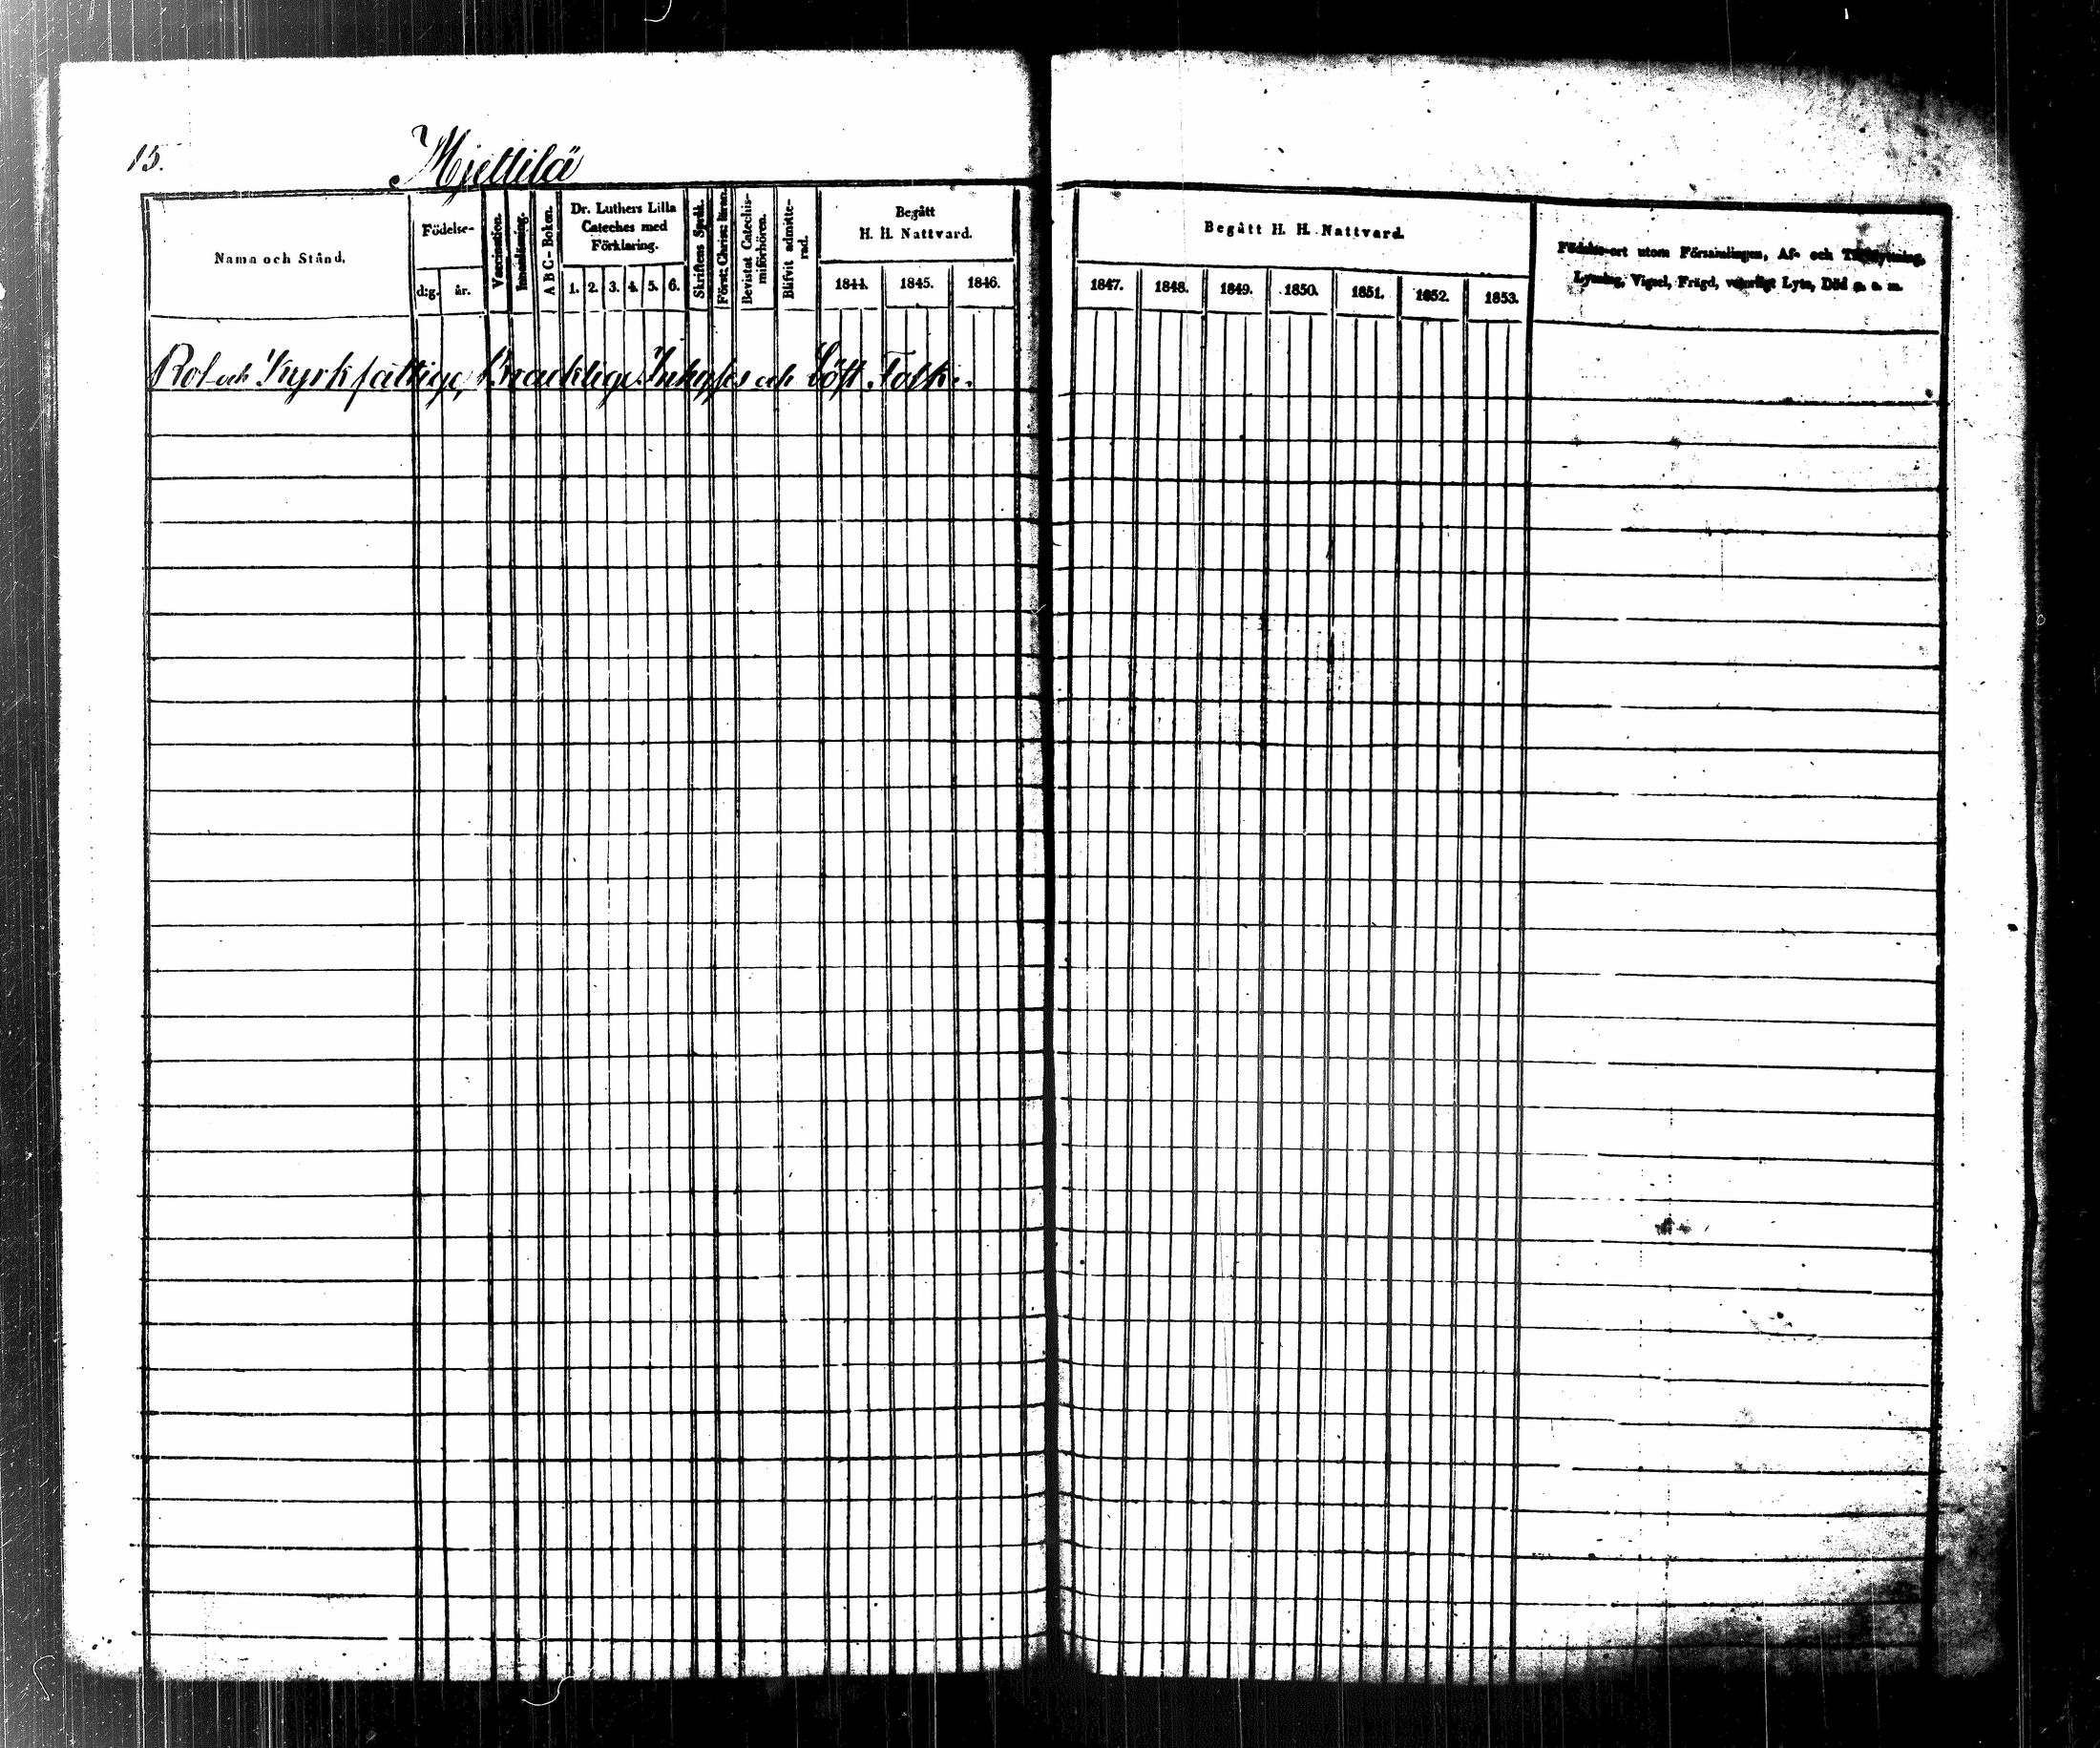 15.
Mjettilä
Namn och Stånd.
Födelse-
d:g.
år.
Vaccination.
Innanläsning.
A B C-Boken.
Dr. Luthers Lilla
Cateches med
Förklaring.
1. 2. 3. 4. 5. 6.
Skriftens Språk.
Först: Christ: läran.
Bevistat Catechis-
miförhören.
Blifvit admitte-
rad.
Begått
H. H. Nattvard.
1844. 1845. 1846.
Begått H. H. Nattvard.
1847. 1848. 1849. 1850. 1851. 1852. 1853.
Födelse-ort utom Församlingen, Af- och Tillflyttning,
Lysning, Vigsel, Frägd, Lyte, Död m. m.
Rot- och Kyrkfattige, Bräcklige Inhyses och Löst Folk.